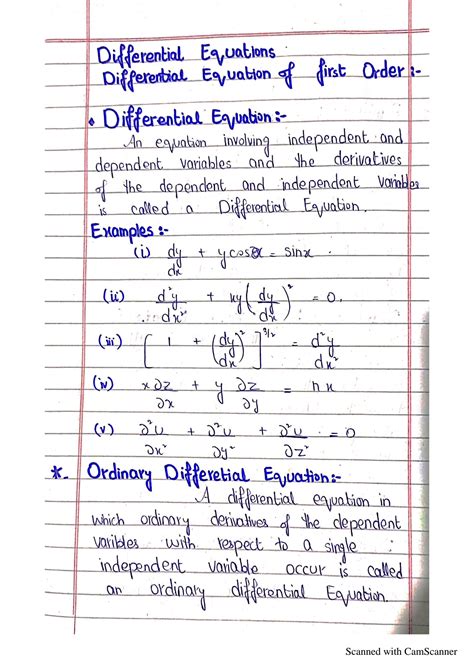 Differential Equations
Differential Equation of first Order :-
Differential Equation :-
An equation involving independent and
dependent variables and the derivatives
of the dependent and independent variables
is called a Differential Equation.
Examples :-
(i) dy/dx + y cosx = sinx.
(ii) d²y/dx² + xy(dy/dx)² = 0.
(iii) [1 + (dy/dx)²]^3/2 = d²y/dx²
(iv) x∂z/∂x + y ∂z/∂y = nx
(v) ∂²u/∂x² + ∂²u/∂y² + ∂²u/∂z² = 0
*. Ordinary Differetial Equation:-
A differential equation in
which ordinary derivatives of the dependent
varibles with respect to a single
independent variable occur is called
an ordinary differential Equation.
Scanned with CamScanner